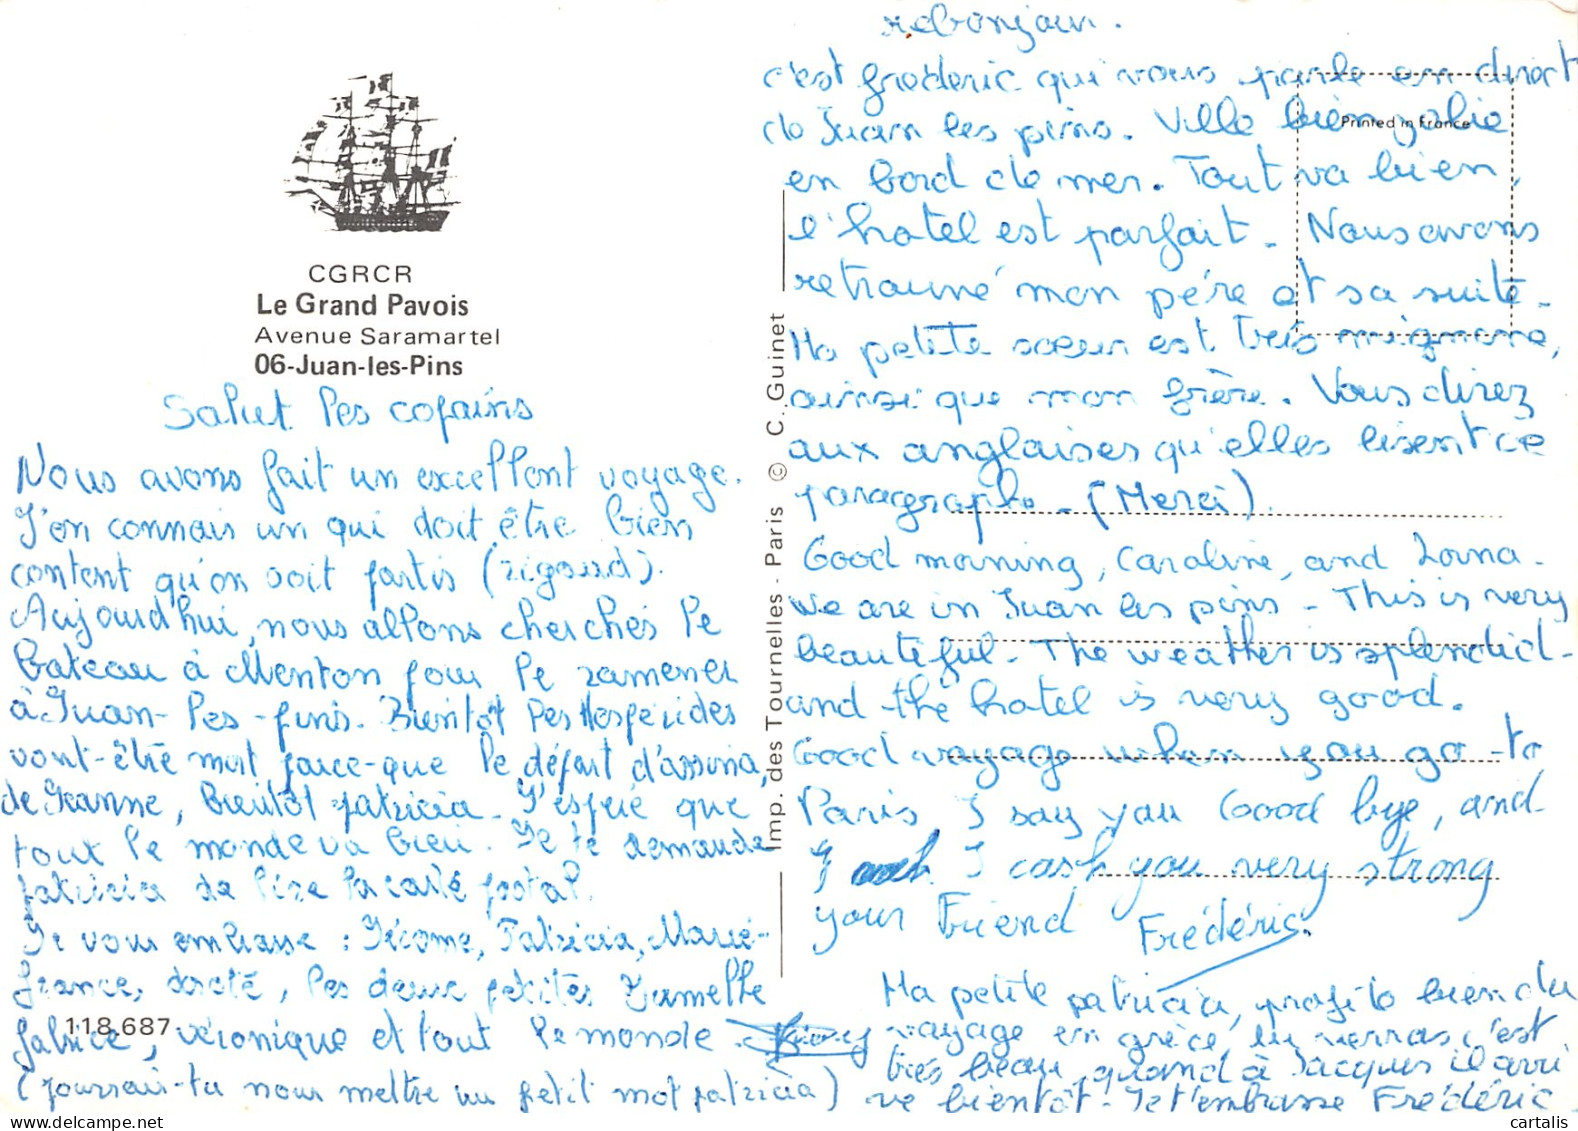 CGRCR
Le Grand Pavois
Avenue Saramartel
06-Juan-les-Pins
Salut les copains
Nous avons fait un excellent voyage.
J'en connais un qui doit être bien
content qu'on soit partis (rigaud).
Aujourd'hui, nous allons cherchés le
bateau à Menton pour le ramener
à Juan-les-pins. Bientôt les Hespérides
vont-être mort parce-que le départ d'assina,
de Jeanne, bientôt patricia. J'espère que
tout le monde va bien. Je te demande
patricia de lire la carte postal.
Je vous embrasse : Jérome, Patricia, Marie-
france, doroté, les deux petites Jumelle
fabrice, véronique et tout le monde.
(pourrais-tu nous mettre un petit mot patricia)
118.687
Imp. des Tournelles - Paris © C. Guinet
Printed in France
rebonjour.
c'est frederic qui vous parle en direct
de Juan les pins. Ville bien jolie
en bord de mer. Tout va bien,
l'hotel est parfait. Nous avons
retrouvé mon père et sa suite.
Ma petite soeur est très mignone,
ainsi que mon frère. Vous direz
aux anglaises qu'elles lisent ce
paragraphe. (Merci)
Good morning, Caroline, and Lorna.
We are in Juan les pins. This is very
beautiful. The weather is splendid.
and the hotel is very good.
Good voyage when you go to
Paris. I say you Good bye, and
I I cash you very strong
your Friend Frédéric.
Ma petite patricia, profite bien du
voyage en grèce, tu verras c'est
très beau, quand à Jacques il arri
ve bientôt. Je t'embrasse Frédéric.
cartalis